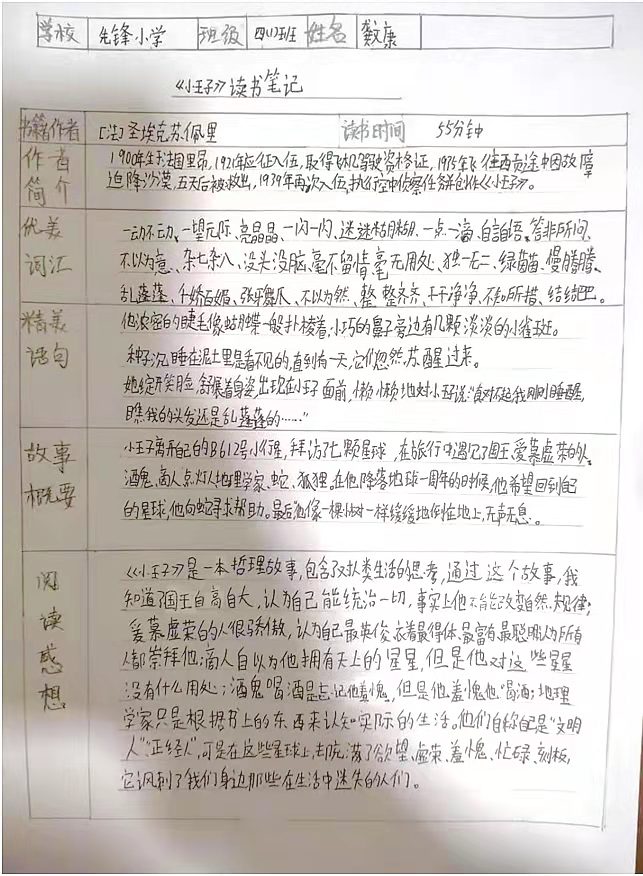 学校 先锋小学 班级 四(1)班 姓名 龚康
《小王子》读书笔记
书籍作者 [法]圣埃克苏佩里 读书时间 55分钟
作者简介
1900年生于法国里昂,1921年应征入伍,取得飞机驾驶资格证,1935年飞往西贡途中因故障
迫降沙漠,五天后被救出,1939年再次入伍,执行空中侦察任务并创作《小王子》。
优美词汇
一动不动、一望无际、亮晶晶、一闪一闪、迷迷糊糊、一点一滴、自言自语、答非所问、
不以为意、杂七杂八、没头没脑、毫不留情、毫无用处、独一无二、绿茵茵、慢腾腾、
乱蓬蓬、千娇百媚、张牙舞爪、不以为然、整整齐齐、干干净净、不知所措、结结巴巴。
精美语句
他浓密的睫毛像蝴蝶一般扑棱着,小巧的鼻子旁边有几颗淡淡的小雀斑。
种子沉睡在泥土里是看不见的,直到有一天,它们忽然苏醒过来。
她绽开笑脸,舒展着身姿,出现在小王子面前,懒懒地对小王子说:“真对不起,我刚刚睡醒,
瞧我的头发还是乱蓬蓬的……”
故事概要
小王子离开自己的B612号小行星,拜访了七颗星球,在旅行中遇见了国王、爱慕虚荣的人、
酒鬼、商人、点灯人、地理学家、蛇、狐狸。在他降落地球一周年的时候,他希望回到自己
的星球,他向蛇寻求帮助。最后他像一棵树一样缓缓地倒在地上,无声无息。
阅读感想
《小王子》是一本哲理故事,包含了对人类生活的思考,通过这个故事,我
知道了国王自高自大,认为自己能统治一切,事实上他不能改变自然规律;
爱慕虚荣的人很骄傲,认为自己最英俊、衣着最得体、最富有、最聪明,认为所有
人都崇拜他;商人自以为他拥有天上的星星,但是他对这些星星
没有什么用处;酒鬼喝酒是忘记他羞愧,但是他羞愧他喝酒;地理
学家只是根据书上的东西来认知实际的生活。他们自称自己是“文明
人”“正经人”,可是在这些星球上,却充满了欲望、虚荣、羞愧、忙碌、刻板,
它讽刺了我们身边那些在生活中迷失的人们。